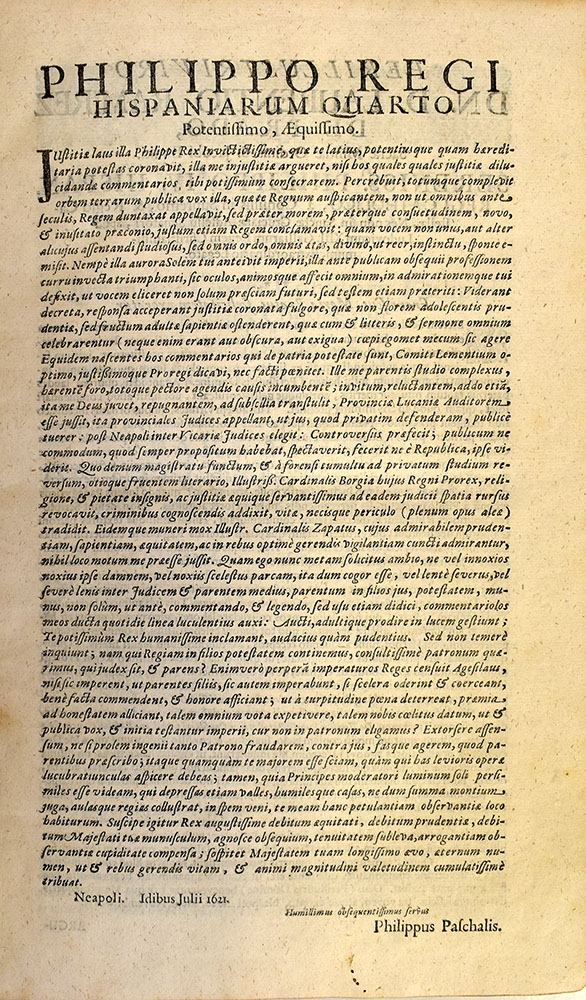 PHILIPPO REGI
HISPANIARUM QUARTO
Potentissimo, Æquissimo.
JUstitiæ laus illa Philippe Rex Invictissimè, quæ te latius, potentiusque quam hæredi-
taria potestas coronavit, illa me injustitiæ argueret, nisi hos quales quales justitiæ dilu-
cidandæ commentarios, tibi potissimùm consecrarem. Percrebuit, totumque complevit
orbem terrarum publica vox illa, quæ te Regnum auspicantem, non ut omnibus ante
seculis, Regem duntaxat appellavit, sed præter morem, præterque consuetudinem, novo,
& inusitato præconio, justum etiam Regem conclamavit: quam vocem non unus, aut alter
alicujus assentandi studiosus, sed omnis ordo, omnis ætas, divino, ut reor, instinctu, sponte e-
misit. Nempè illa aurora Solem tui anteivit imperii, illa ante publicam obsequii professionem
curru invecta triumphanti, sic oculos, animosque affecit omnium, in admirationemque tui
defixit, ut vocem eliceret non solum præsciam futuri, sed testem etiam præteriti: Viderant
decreta, responsa acceperant justitiæ coronata fulgore, quæ non florem Adolescentis pru-
dentiæ, sed fructum adultæ sapientiæ ostenderent, quæ cum & litteris, & sermone omnium
celebrarentur (neque enim erant aut obscura, aut exigua) cœpi egomet mecum sic agere
Equidem nascentes hos commentarios qui de patria potestate sunt, Comiti Lementium o-
ptimo, justissimoque Proregi dicavi, nec facti pœnitet. Ille me parentis studio complexus,
hærentē foro, totoque pectore agendis causis incumbentē; invitum, reluctantem, addo etiā,
ita me Deus juvet, repugnantem, ad subsellia transtulit, Provinciæ Lucaniæ Auditorem
esse jussit, ita provinciales Judices appellant, ut jus, quod privatim defenderam, publicè
tuerer: post Neapoli inter Vicariæ Judices elegit: Controversiis præfecit; publicum ne
commodum, quod semper propositum habebat, spectaverit, fecerit ne è Republica, ipse vi-
derit. Quo demum magistratu functum, & à forensi tumultu ad privatum studium re-
versum, otioque fruentem literario, Illustriss. Cardinalis Borgia hujus Regni Prorex, reli-
gione, & pietate insignis, ac justitiæ æquique servantissimus ad eadem judicii spatia rursus
revocavit, criminibus cognoscendis addixit, vitæ, necisque periculo (plenum opus aleæ)
tradidit. Eidemque muneri mox Illustr. Cardinalis Zapatus, cujus admirabilem pruden-
tiam, sapientiam, æquitatem, ac in rebus optimè gerendis vigilantiam cuncti admirantur,
nihil loco motum me præesse jussit. Quam ego nunc metam solicitus ambio, ne vel innoxios
noxius ipse damnem, vel noxiis scelestus parcam, ita dum cogor esse, vel lentè severus, vel
severè lenis inter Judicem & parentem medius, parentum in filios jus, potestatem, mu-
nus, non solùm, ut antè, commentando, & legendo, sed usu etiam didici, commentariolos
meos ducta quotidie linea luculentius auxi: Aucti, adultique prodire in lucem gestiunt;
Te potissimùm Rex humanissime inclamant, audacius quàm pudentius. Sed non temerè
inquiunt; nam qui Regiam in filios potestatem continemus, consultissimè patronum quæ-
rimus, qui judex sit, & parens? Enimverò perperā imperaturos Reges censuit Agesilaus,
nisi sic imperent, ut parentes filiis, sic autem imperabunt, si scelera oderint & coerceant,
benè facta commendent, & honore afficiant; ut à turpitudine pœna deterreat, præmia
ad honestatem alliciant, talem omnium vota expetivere, talem nobis cœlitus datum, ut &
publica vox, & initia testantur imperii, cur non in patronum eligamus? Extorsere assen-
sum, ne si prolem ingenii tanto Patrono fraudarem, contra jus, fasque agerem, quod pa-
rentibus præscribo; itaque quamquàm te majorem esse sciam, quàm qui has levioris operæ
lucubratiunculas aspicere debeas; tamen, quia Principes moderatori luminum soli persi-
miles esse videam, qui depressas etiam valles, humilesque casas, ne dum summa montium
juga, aulasque regias collustrat, in spem veni, te meam hanc petulantiam observantiæ loco
habiturum. Suscipe igitur Rex augustissime debitum æquitati, debitum prudentiæ, debi-
tum Majestati tuæ munusculum, agnosce obsequium, tenuitatem subleva, arrogantiam ob-
servantiæ cupiditate compensa; sospitet Majestatem tuam longissimo ævo, æternum nu-
men, ut & rebus gerendis vitam, & animi magnitudini valetudinem cumulatissimè
tribuat.
Neapoli. Idibus Julii 1621.
Humillimus obsequentissimus servus
Philippus Paschalis.